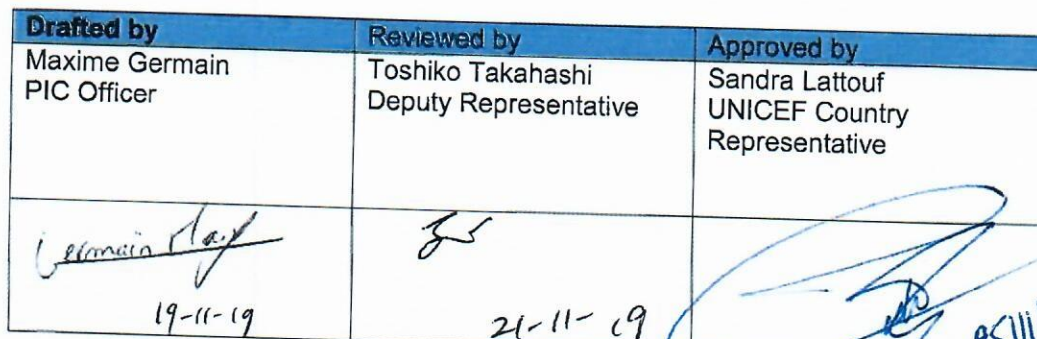 Drafted by
Reviewed by
Approved by
Maxime Germain
PIC Officer
Toshiko Takahashi
Deputy Representative
Sandra Lattouf
UNICEF Country
Representative
Germain Max
19-11-19
21-11-19